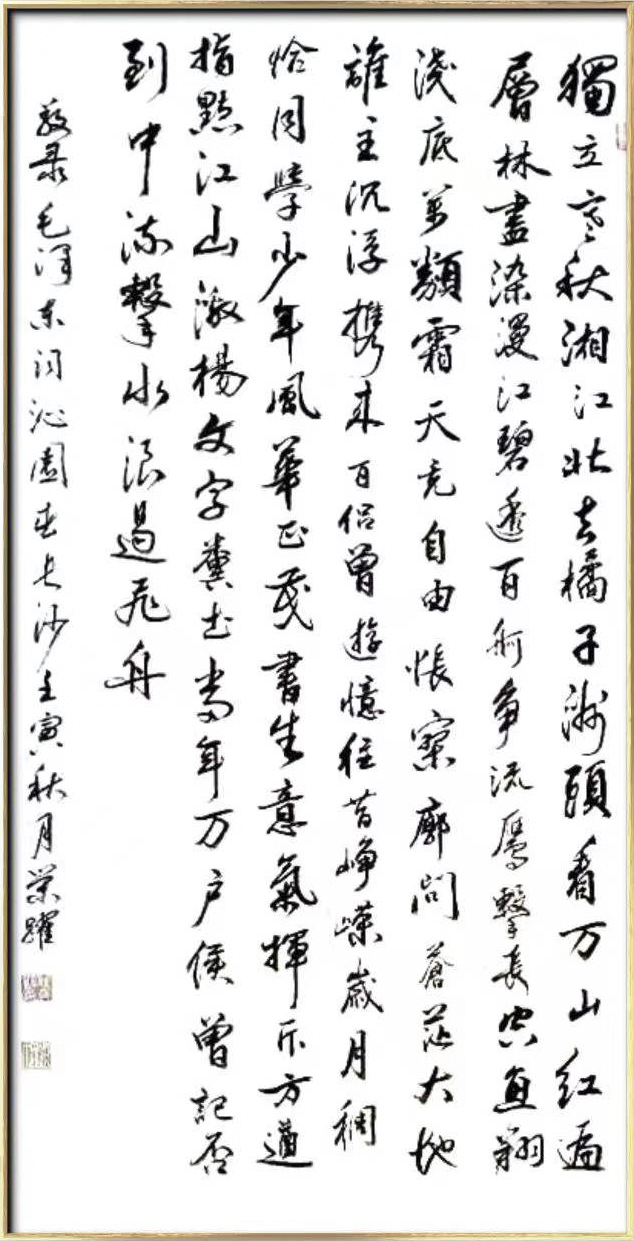 獨立寒秋湘江北去橘子洲頭看万山红遍
層林盡染漫江碧透百舸争流鷹擊長空魚翔
淺底萬類霜天竞自由悵寥廓問蒼茫大地
誰主沉浮携来百侣曾遊憶往昔峥嶸歲月稠
恰同學少年風華正茂書生意氣揮斥方遒
指點江山激楊文字糞土當年万户侯曾記否
到中流擊水浪遏飛舟
敬录毛澤东词沁園春長沙壬寅秋月荣躍